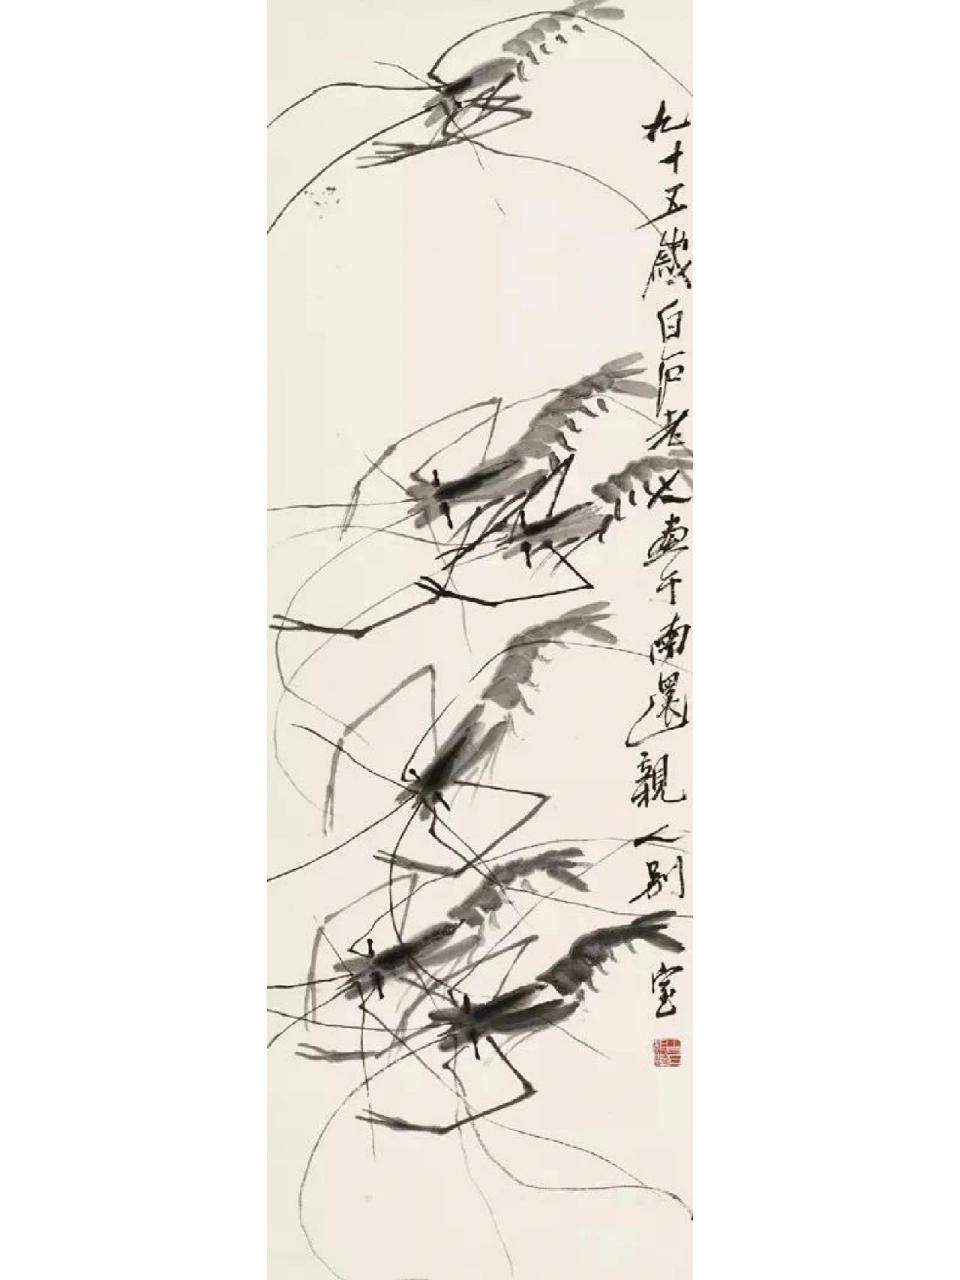 九十五歲白石老人畫于南還親人別室